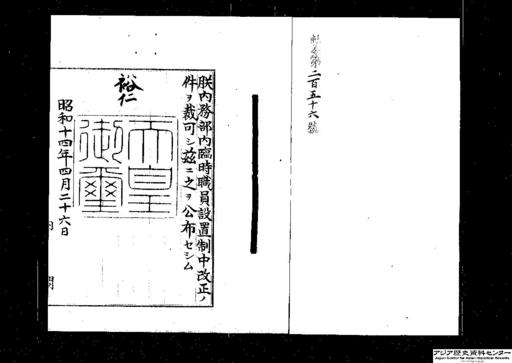 勅令第二百五十六號
朕内務部内臨時職員設置制中改正ノ
件ヲ裁可シ茲ニ之ヲ公布セシム
裕仁
天皇
御璽
昭和十四年四月二十六日
内閣
アジア歴史資料センター
Japan Center for Asian Historical Records